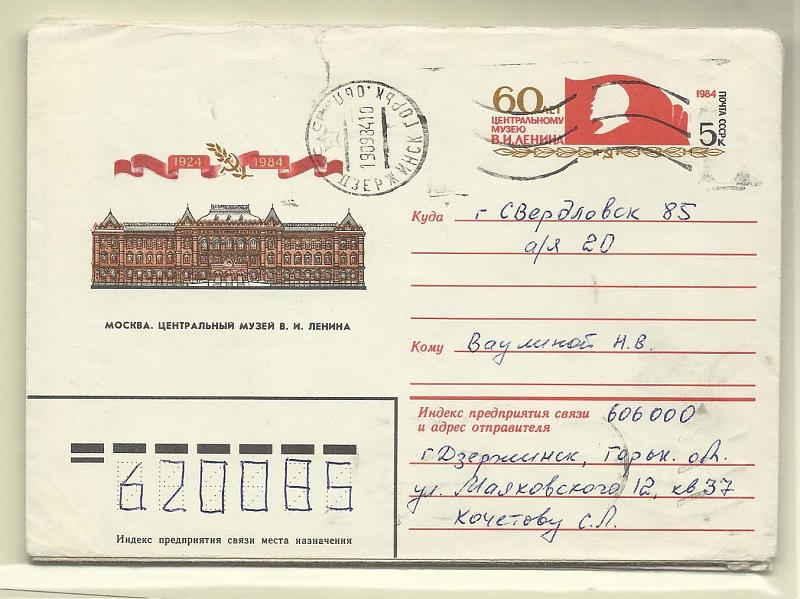 60 ЛЕТ
ЦЕНТРАЛЬНОМУ
МУЗЕЮ
В.И. ЛЕНИНА
1984
ПОЧТА СССР
5к
ДЗЕРЖИНСК ГОРЬК. ОБЛ
19098410
1924 1984
МОСКВА. ЦЕНТРАЛЬНЫЙ МУЗЕЙ В. И. ЛЕНИНА
Куда г Свердловск 85
а/я 20
Кому Ваулиной Н.В.
Индекс предприятия связи и адрес отправителя 606000
г Дзержинск, Горьк. обл.
ул. Маяковского 12, кв 37
Кочетову С.Л.
620085
Индекс предприятия связи места назначения